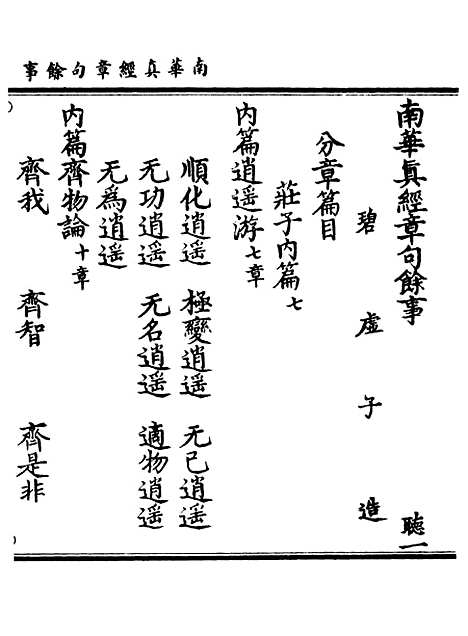 南華真經章句餘事
南華真經章句餘事 聽一
碧虛子造
分章篇目
莊子内篇七
内篇逍遥游七章
順化逍遥 極變逍遥 无己逍遥
无功逍遥 无名逍遥 適物逍遥
无為逍遥
内篇齊物論十章
齊我 齊智 齊是非